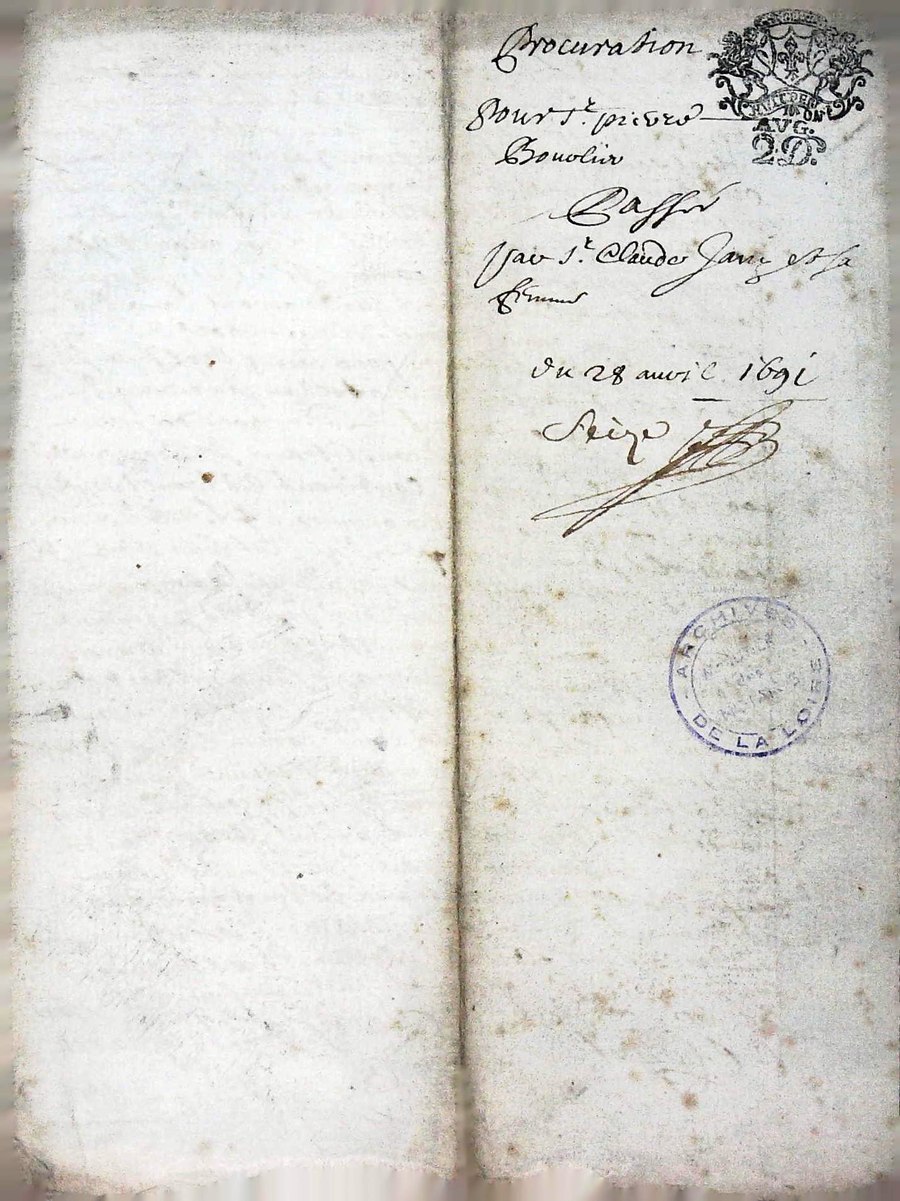 Procuration
Pour Sr. pierre
Bouolier
Passée
par Sr. Claude Jany et sa
femme
du 28 avril 1691
Seize
AVG.
2.D.
ARCHIVES
DE LA LOIRE